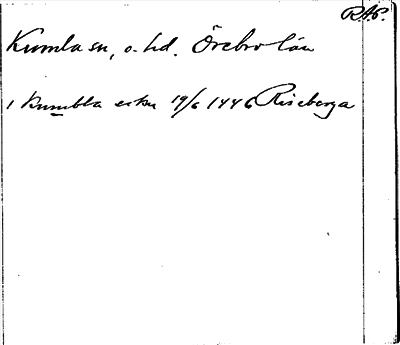 RAP.
Kumla sn, o. hd. Örebro län
1 Kumbla 19/6 1446 Riseberga